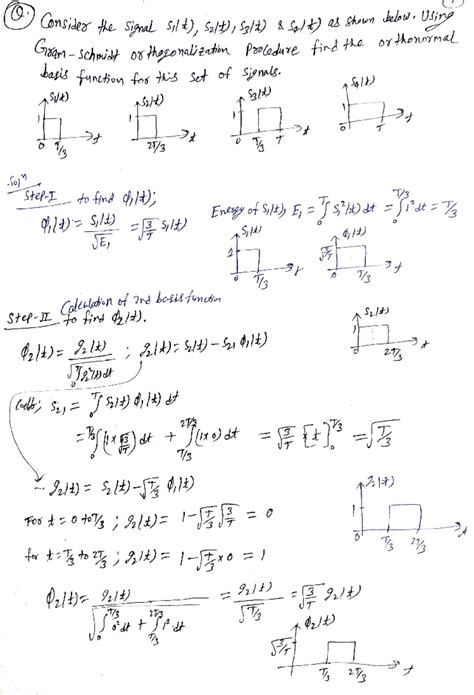 Q. Consider the signal S1(t), S2(t), S3(t) & S4(t) as shown below. Using
Gram-Schmidt orthogonalization Procedure find the orthonormal
basis function for this set of signals.
S1(t) S2(t) S3(t) S4(t)
1 1 1 1
0 T/3 t 2T/3 t 0 T/3 T t 0 T t
Solⁿ
Step-I to find φ1(t);
φ1(t) = S1(t)/√E1 = √(3/T) S1(t) Energy of S1(t), E1 = ∫₀ᵀ S1²(t) dt = ∫₀^(T/3) 1² dt = T/3
S1(t) φ1(t)
1 √(3/T)
T/3 t 0 T/3 t
Calculation of 2nd basis function
Step-II to find φ2(t).
φ2(t) = g2(t)/√(∫₀ᵀ g2²(t) dt) ; g2(t) = S2(t) - S21 φ1(t)
S2(t)
1
0 2T/3 t
S21 = ∫₀ᵀ S2(t) φ1(t) dt
= ∫₀^(T/3) (1×√(3/T)) dt + ∫_(T/3)^(2T/3) (1×0) dt = √(3/T) [t]₀^(T/3) = √(T/3)
∴ g2(t) = S2(t) - √(T/3) φ1(t)
For t = 0 to T/3 ; g2(t) = 1 - √(T/3) √(3/T) = 0
for t = T/3 to 2T/3 ; g2(t) = 1 - √(T/3) × 0 = 1
g2(t)
1
0 T/3 2T/3 t
φ2(t) = g2(t)/√(∫₀^(T/3) 0² dt + ∫_(T/3)^(2T/3) 1² dt) = g2(t)/√(T/3) = √(3/T) g2(t)
φ2(t)
√(3/T)
T/3 2T/3 t